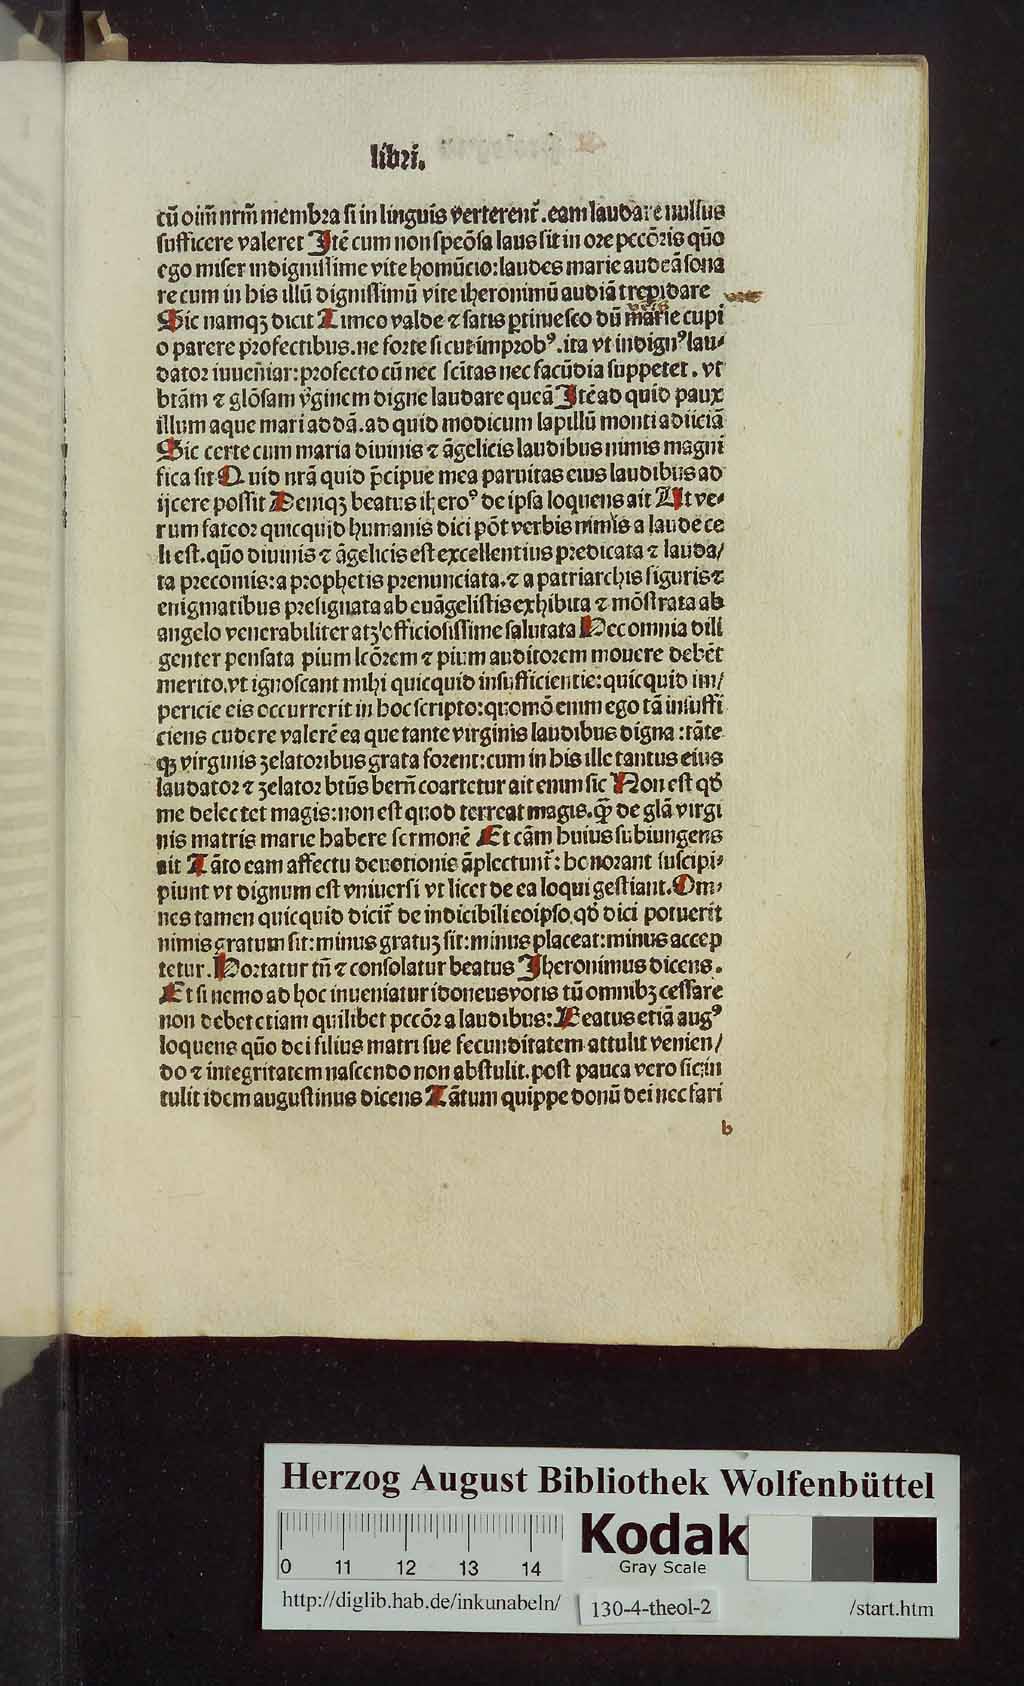 libri.
cū oīm̄ nrm̄ membra si in linguis verterent᷑. eam laudare nullus
sufficere valeret Itē cum non speōsa laus sit in ore pccōris quō
ego miser indignissime vite homūcio: laudes marie audeā sona
re cum in his illū dignissimū vite iheronimū audiā trepidare
Sic namqꝫ dicit Timeo valde ⁊ satis ꝑtimesco dū marie cupi
o parere profectibus. ne forte sicut improbꝰ. ita vt indignꝰ lau⸗
dator inveniar: profecto cū nec scītas nec facūdia suppetet. vt
btām ⁊ glōsam v̓ginem digne laudare queā Itē ad quid paux
illum aque mari addā. ad quid modicum lapillū monti adiiciā
Sic certe cum maria diuinis ⁊ āgelicis laudibus nimis magni
fica sit Quid nrā quid p̄cipue mea paruitas eius laudibus ad
ijcere possit Deniqꝫ beatus iheroꝰ de ipsa loquens ait Ut ve⸗
rum fateor quicquid humanis dici pōt verbis minus a laude ce
li est. quō diuinis ⁊ āgelicis est excellentius predicata ⁊ lauda/
ta preconiis: a prophetis prenunciata. ⁊ a patriarchis figuris ⁊
enigmatibus presignata ab euāgelistis exhibita ⁊ mōstrata ab
angelo venerabiliter atqꝫ efficiosissime salutata Hec omnia dili
genter pensata pium lcōrem ⁊ pium auditorem mouere debēt
merito. vt ignoscant mihi quicquid insufficientie: quicquid im/
pericie eis occurrerit in hoc scripto: quomō enim ego tā insuffi
ciens cudere valerē ea que tante virginis laudibus digna: tāte
qꝫ virginis zelatoribus grata forent: cum in his ille tantus eius
laudator ⁊ zelator btūs bern̄ coartetur ait enim sic Non est qđ
me delectet magis: non est quod terreat magis. qꝫ̄ de glā virgi
nis matris marie habere sermonē Et cām huius subiungens
ait Tāto eam affectu deuotionis āplectunt᷑: honorant suscipi⸗
piunt vt dignum est vniuersi vt licet de ea loqui gestiant. Om⸗
nes tamen quicquid dicit᷑ de indicibili eoipso. qđ dici potuerit
nimis gratum sit: minus gratuꝫ sit: minus placeat: minus accep
tetur. Hortatur tn̄ ⁊ consolatur beatus Iheronimus dicens.
Et si nemo ad hoc inueniatur idoneus votis tū omnibꝫ cessare
non debet etiam quilibet pccōr a laudibus: Beatus etiā augꝰ
loquens quō dei filius matri sue fecunditatem attulit venien/
do ⁊ integritatem nascendo non abstulit. post pauca vero sic in
tulit idem augustinus dicens Tātum quippe donū dei nec fari
b
Herzog August Bibliothek Wolfenbüttel
0 11 12 13 14
Kodak
Gray Scale
http://diglib.hab.de/inkunabeln/ 130-4-theol-2 /start.htm